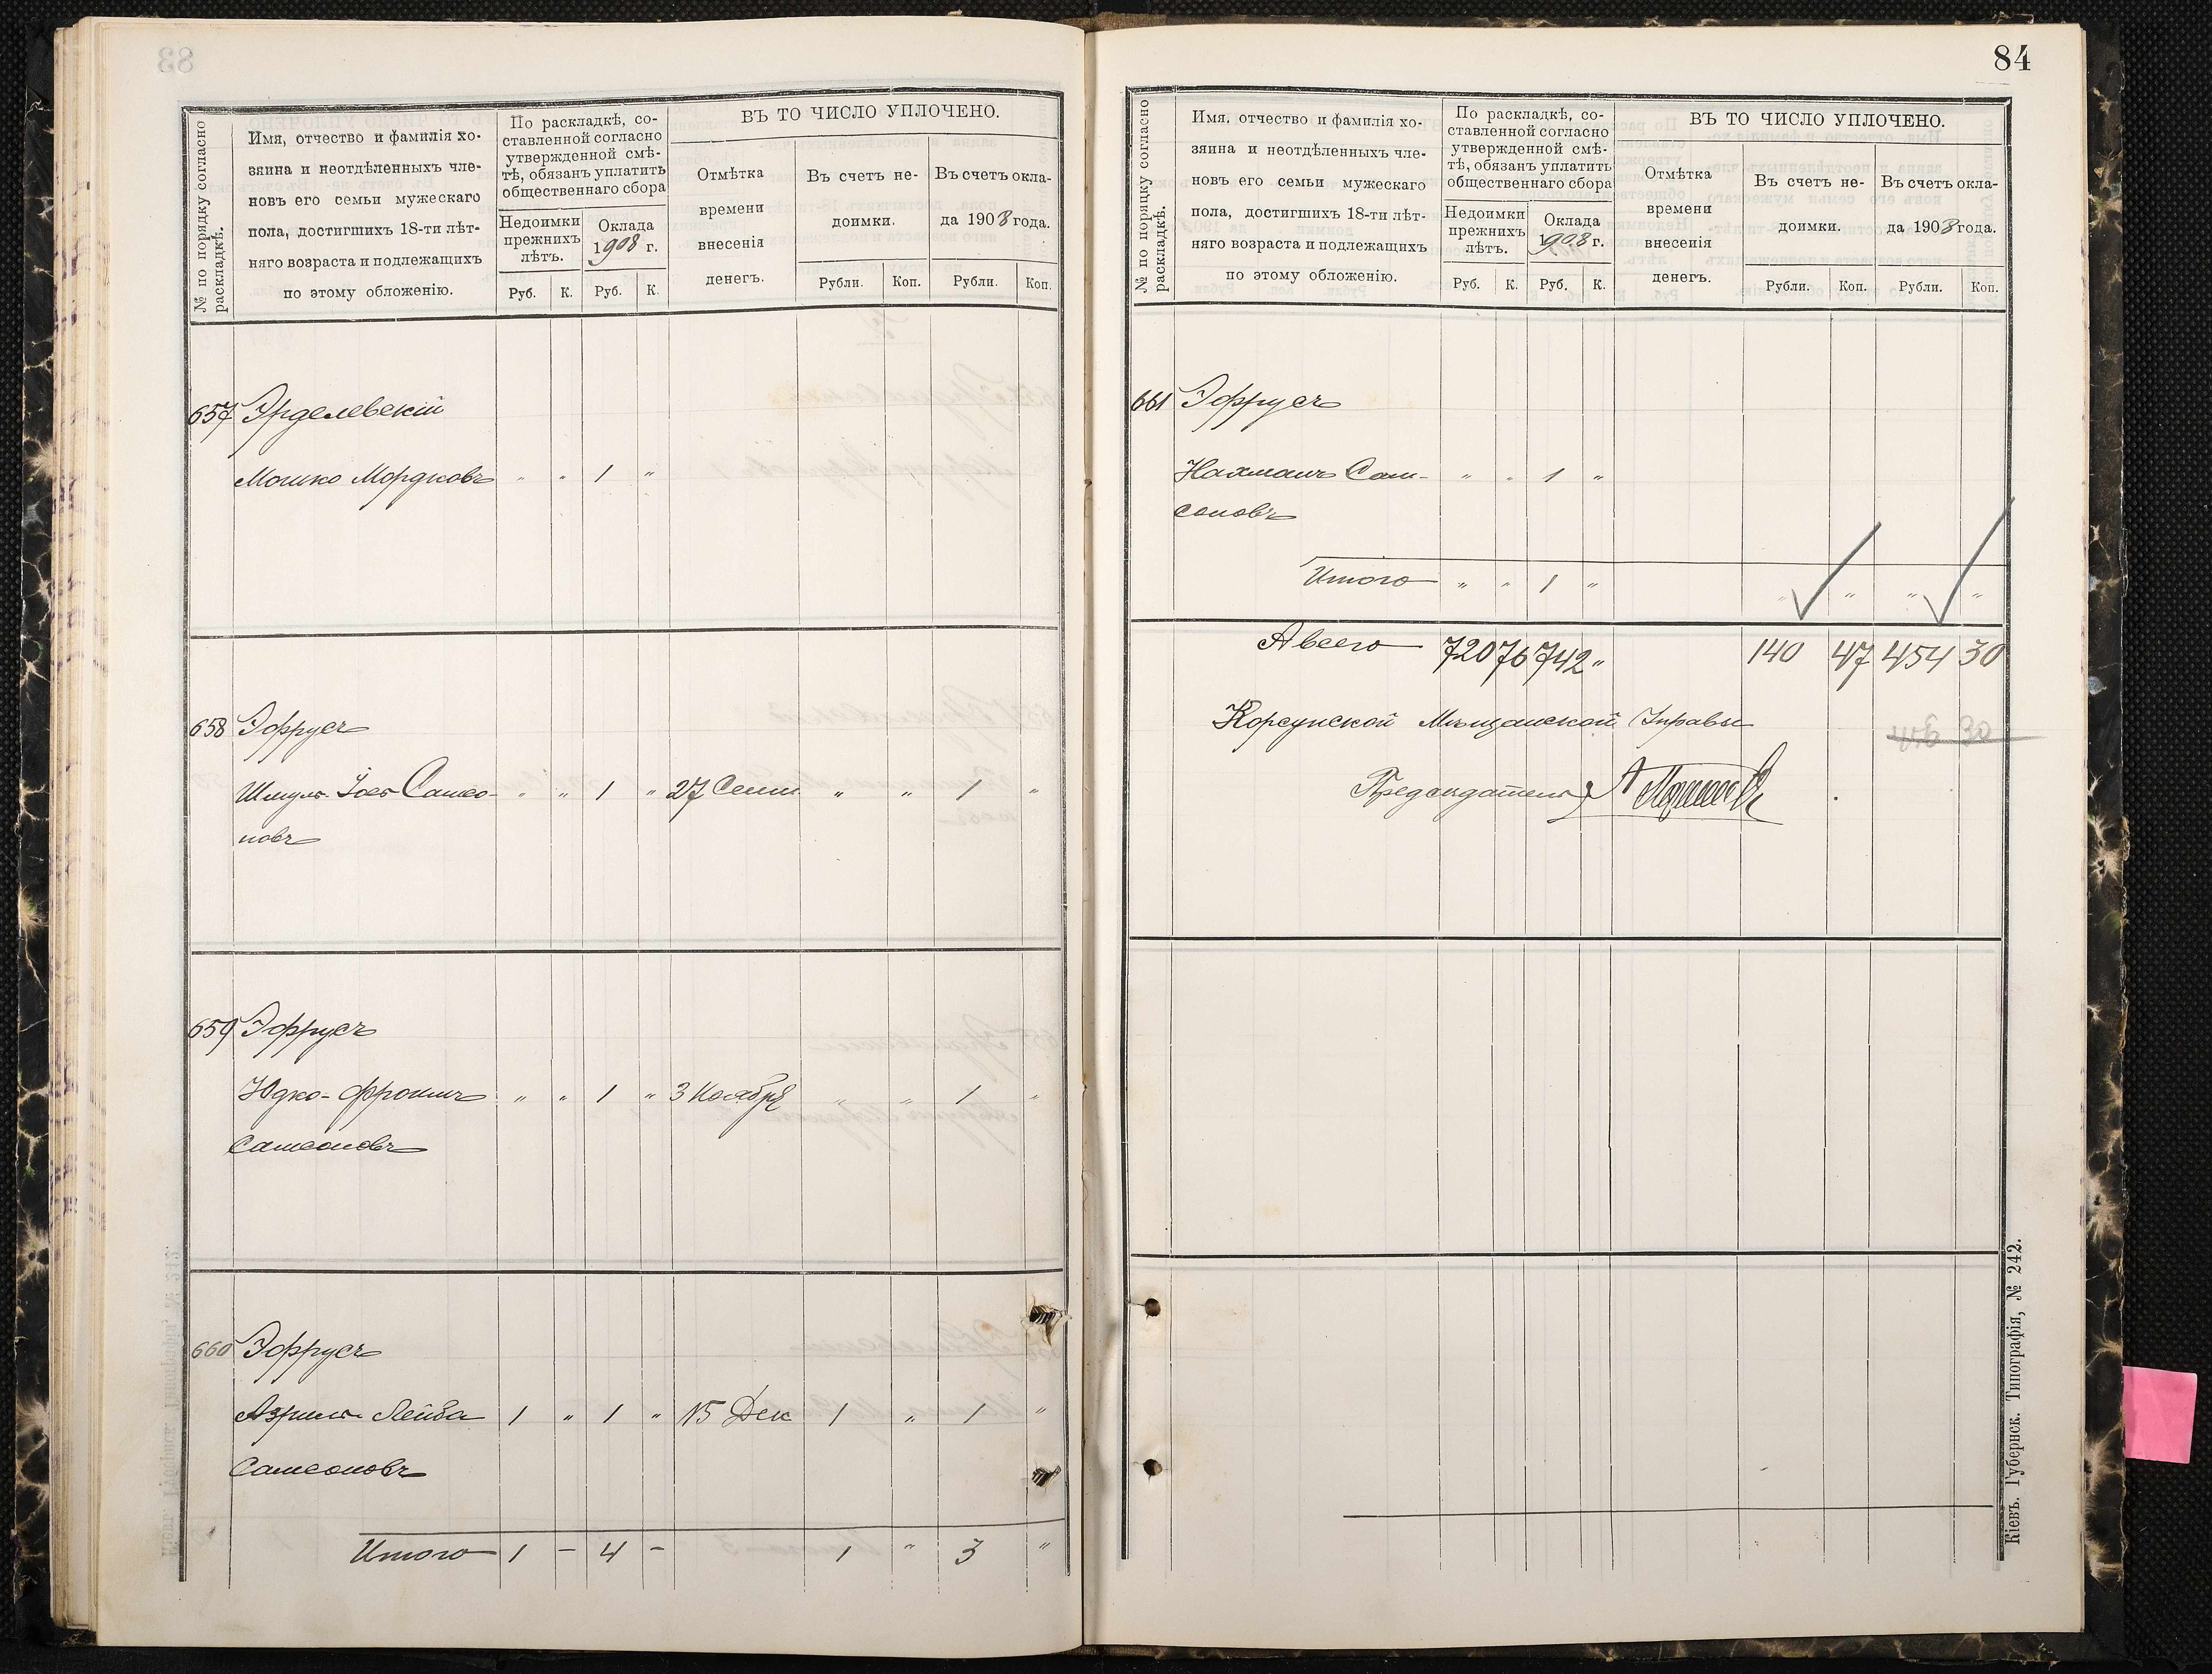 № по порядку согласно раскладкѣ.
Имя, отчество и фамилія хо-
зяина и неотдѣленныхъ чле-
новъ его семьи мужескаго
пола, достигшихъ 18-ти лѣт-
няго возраста и подлежащихъ
по этому обложенію.
По раскладкѣ, со-
ставленной согласно
утвержденной смѣ-
тѣ, обязанъ уплатить
общественнаго сбора
Недоимки прежнихъ лѣтъ.
Оклада 1908 г.
Руб. К. Руб. К.
ВЪ ТО ЧИСЛО УПЛОЧЕНО.
Отмѣтка
времени
внесенія
денегъ.
Въ счетъ не-
доимки.
Рубли. Коп.
Въ счетъ окла-
да 1908 года.
Рубли. Коп.
657 Эрделевскій
Мошко Мордковъ " " 1 "
658 Эфрусъ
Шмуль Іось Самсо- " " 1 " 27 Сент. " " 1 "
новъ
659 Эфрусъ
Юдко-Фроимъ " " 1 " 3 Ноября " " 1 "
Самсоновъ
660 Эфрусъ
Азриль Лейба 1 " 1 " 15 Дек 1 " 1 "
Самсоновъ
Итого 1 – 4 – 1 " 3 "
84
№ по порядку согласно раскладкѣ.
Имя, отчество и фамилія хо-
зяина и неотдѣленныхъ чле-
новъ его семьи мужескаго
пола, достигшихъ 18-ти лѣт-
няго возраста и подлежащихъ
по этому обложенію.
По раскладкѣ, со-
ставленной согласно
утвержденной смѣ-
тѣ, обязанъ уплатить
общественнаго сбора
Недоимки прежнихъ лѣтъ.
Оклада 1908 г.
Руб. К. Руб. К.
ВЪ ТО ЧИСЛО УПЛОЧЕНО.
Отмѣтка
времени
внесенія
денегъ.
Въ счетъ не-
доимки.
Рубли. Коп.
Въ счетъ окла-
да 1908 года.
Рубли. Коп.
661 Эфрусъ
Нахманъ Сам- " " 1 "
соновъ
Итого " " 1 " " " " "
А всего 720 76 742 " 140 47 454 30
Корсунской Мѣщанской Управы
Предсѣдатель
Кіевъ. Губернск. Типографія, № 242.